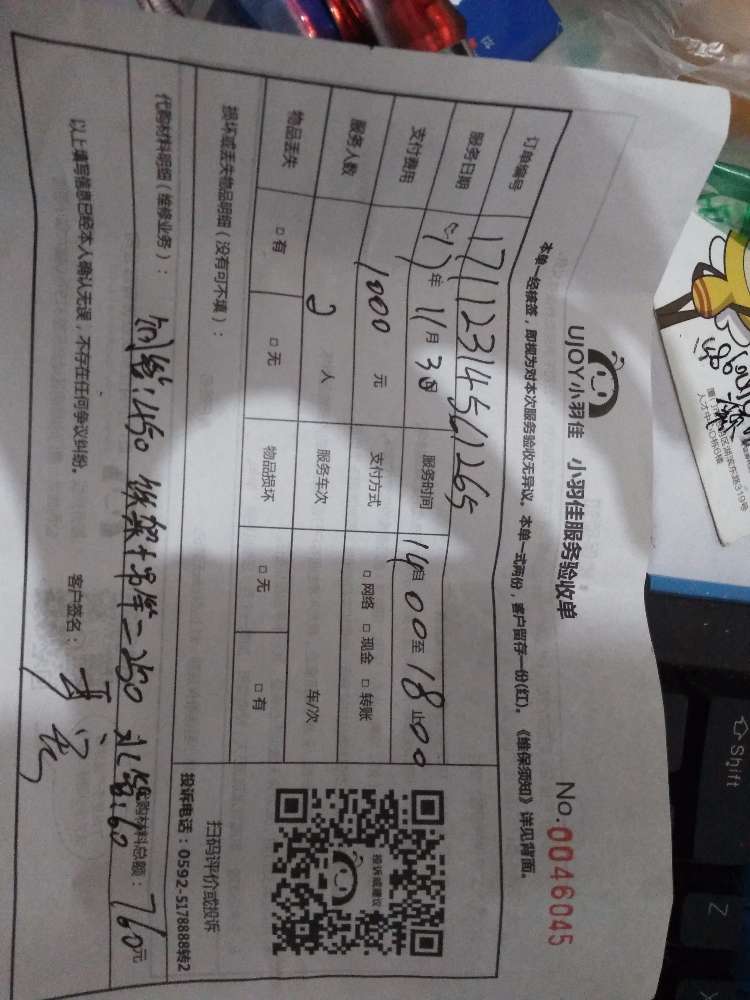 UJOY小羽佳 小羽佳服务验收单
No.0046045
本单一经核签，即视为对本次服务验收无异议。本单一式两份，客户留存一份(红)。《维保须知》详见背面。
订单编号 17112314561265
服务日期 17年11月30日 服务时间 自14:00至18:00止
支付费用 1000元 支付方式 □网络 □现金 □转账
服务人数 2人 服务车次 车/次
物品丢失 □有 □无 物品损坏 □无 □有
损坏或丢失物品明细（没有可不填）：
投诉或建议
扫码评价或投诉
投诉电话：0592-5178888转2
代购材料明细（维修业务）：
铜管:450 铁架+吊竿=250 水管:60
代购材料总额：760元
以上填写信息已经本人确认无误，不存在任何争议纠纷。 客户签名：
人才中心
Shift
Z
X